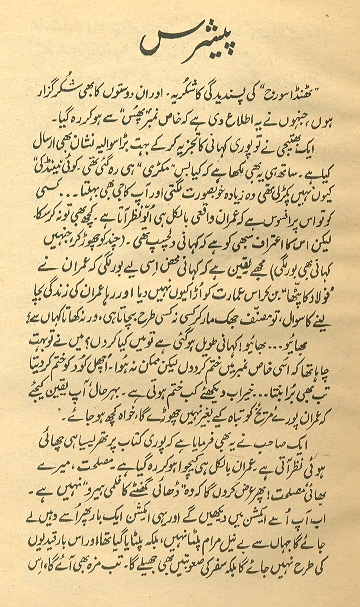 پیشرس
”ٹھنڈا سورج“ کی پسندیدگی کا شکریہ۔ اور ان دوستوں کا بھی شکر گزار
ہوں، جنہوں نے یہ اطلاع دی ہے کہ خاص نمبر ”پھُس“ سے ہو کر رہ گیا۔
ایک بھتیجی نے تو پوری کہانی کا تجزیہ کر کے بہت بڑا سوالیہ نشان بھی ارسال
کیا ہے۔ ساتھ ہی یہ بھی لکھا ہے کہ کیا بس ”مکڑی“ ہی رہ گئی تھی۔ کوئی مینڈکی
کیوں نہیں پکڑلی تھی وہ زیادہ خوبصورت لگتی اور آپ کا جی بھی بہلتا... کسی
کو تو اس پر افسوس ہے کہ عمران واقعی بالکل ہی اُلّو نظر آتا ہے۔ کچھ بھی تو نہ کرسکا۔
لیکن اس کا اعتراف سبھی کو ہے کہ کہانی دلچسپ تھی۔ (چند کو چھوڑ کر جنہیں
کہانی بھی بور لگی) مجھے یقین ہے کہ کہانی محض اسی لئے بور لگی کہ عمران نے
”فولاد کا پٹھا“ بن کر اس عمارت کو اڑا کیوں نہیں دیا اور رہا عمران کی زندگی بچا
لینے کا سوال، تو مصنف جھک مار کر کسی نہ کسی طرح بچاتا ہی، ورنہ کھاتا کہاں سے؟
بھائیو... بھائیو! کہانی طویل ہو گئی ہے تو میں کیا کروں؟ میں نے تو بہت
چاہا تھا کہ اسی خاص نمبر میں ختم کر دوں لیکن ممکن نہ ہوا۔ اچھل کود کر ختم کر دیتا
تب بھی بُرا بنتا... خیر اب دیکھئے کب ختم ہوتی ہے۔ بہرحال آپ یقین کیجئے
کہ عمران پورے مریخ کو تباہ کیے بغیر نہیں چھوڑے گا، خواہ کچھ ہو جائے۔
ایک صاحب نے یہ بھی فرمایا ہے کہ پوری کتاب پر تھریسیا ہی چھائی
ہوئی نظر آتی ہے۔ عمران بالکل ہی کیچوا ہو کر رہ گیا ہے۔ مصلحت، میرے
بھائی مصلحت؛ پھر عرض کردوں گا کہ وہ ”ڈھائی گھنٹے کا فلمی ہیرو“ نہیں ہے۔
اب آپ اُسے ایکشن میں دیکھیں گے اور یہی ایکشن ایک بار پھر اُسے وہیں لے
جائے گا جہاں سے بے نیل مرام پلٹا نہیں، بلکہ پلٹایا گیا تھا اور اس بار قیدیوں
کی طرح نہیں جائے گا بلکہ سفر کی صعوبتیں بھی جھیلے گا۔ تب مزہ بھی آئے گا، اِس